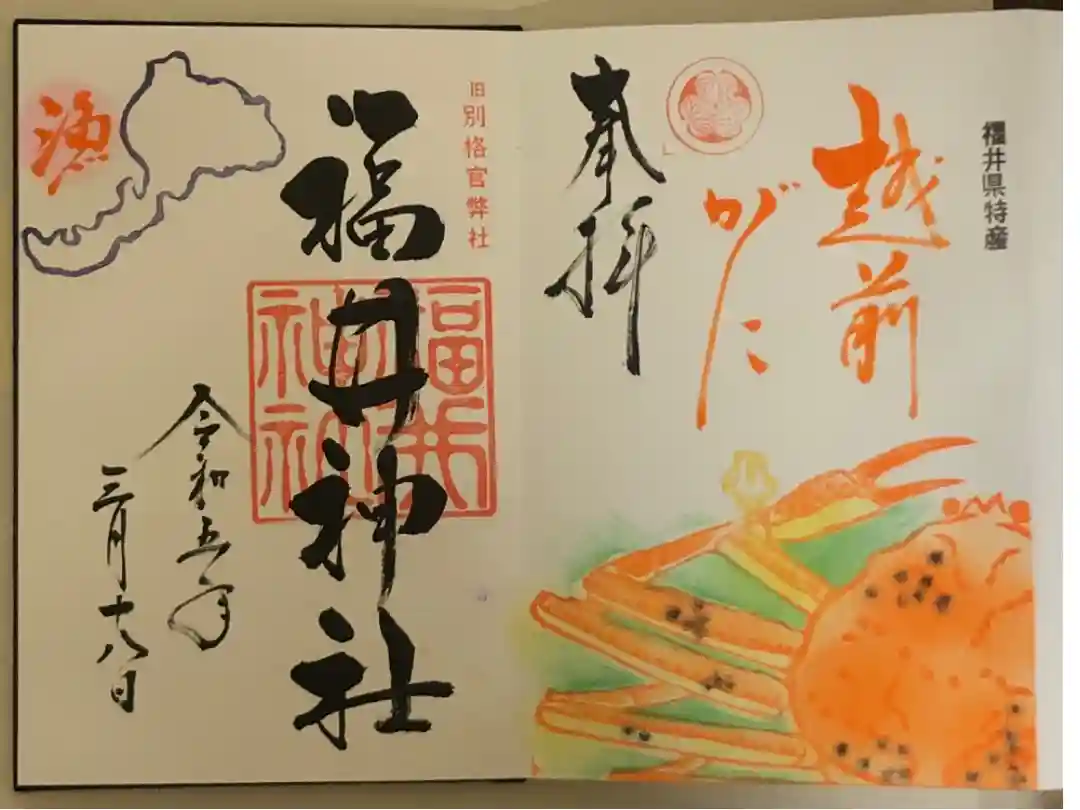 福井県特産
越前
がに
奉拝
旧別格官弊社
福井神社
福井
神社
令和五年
三月十八日
漁